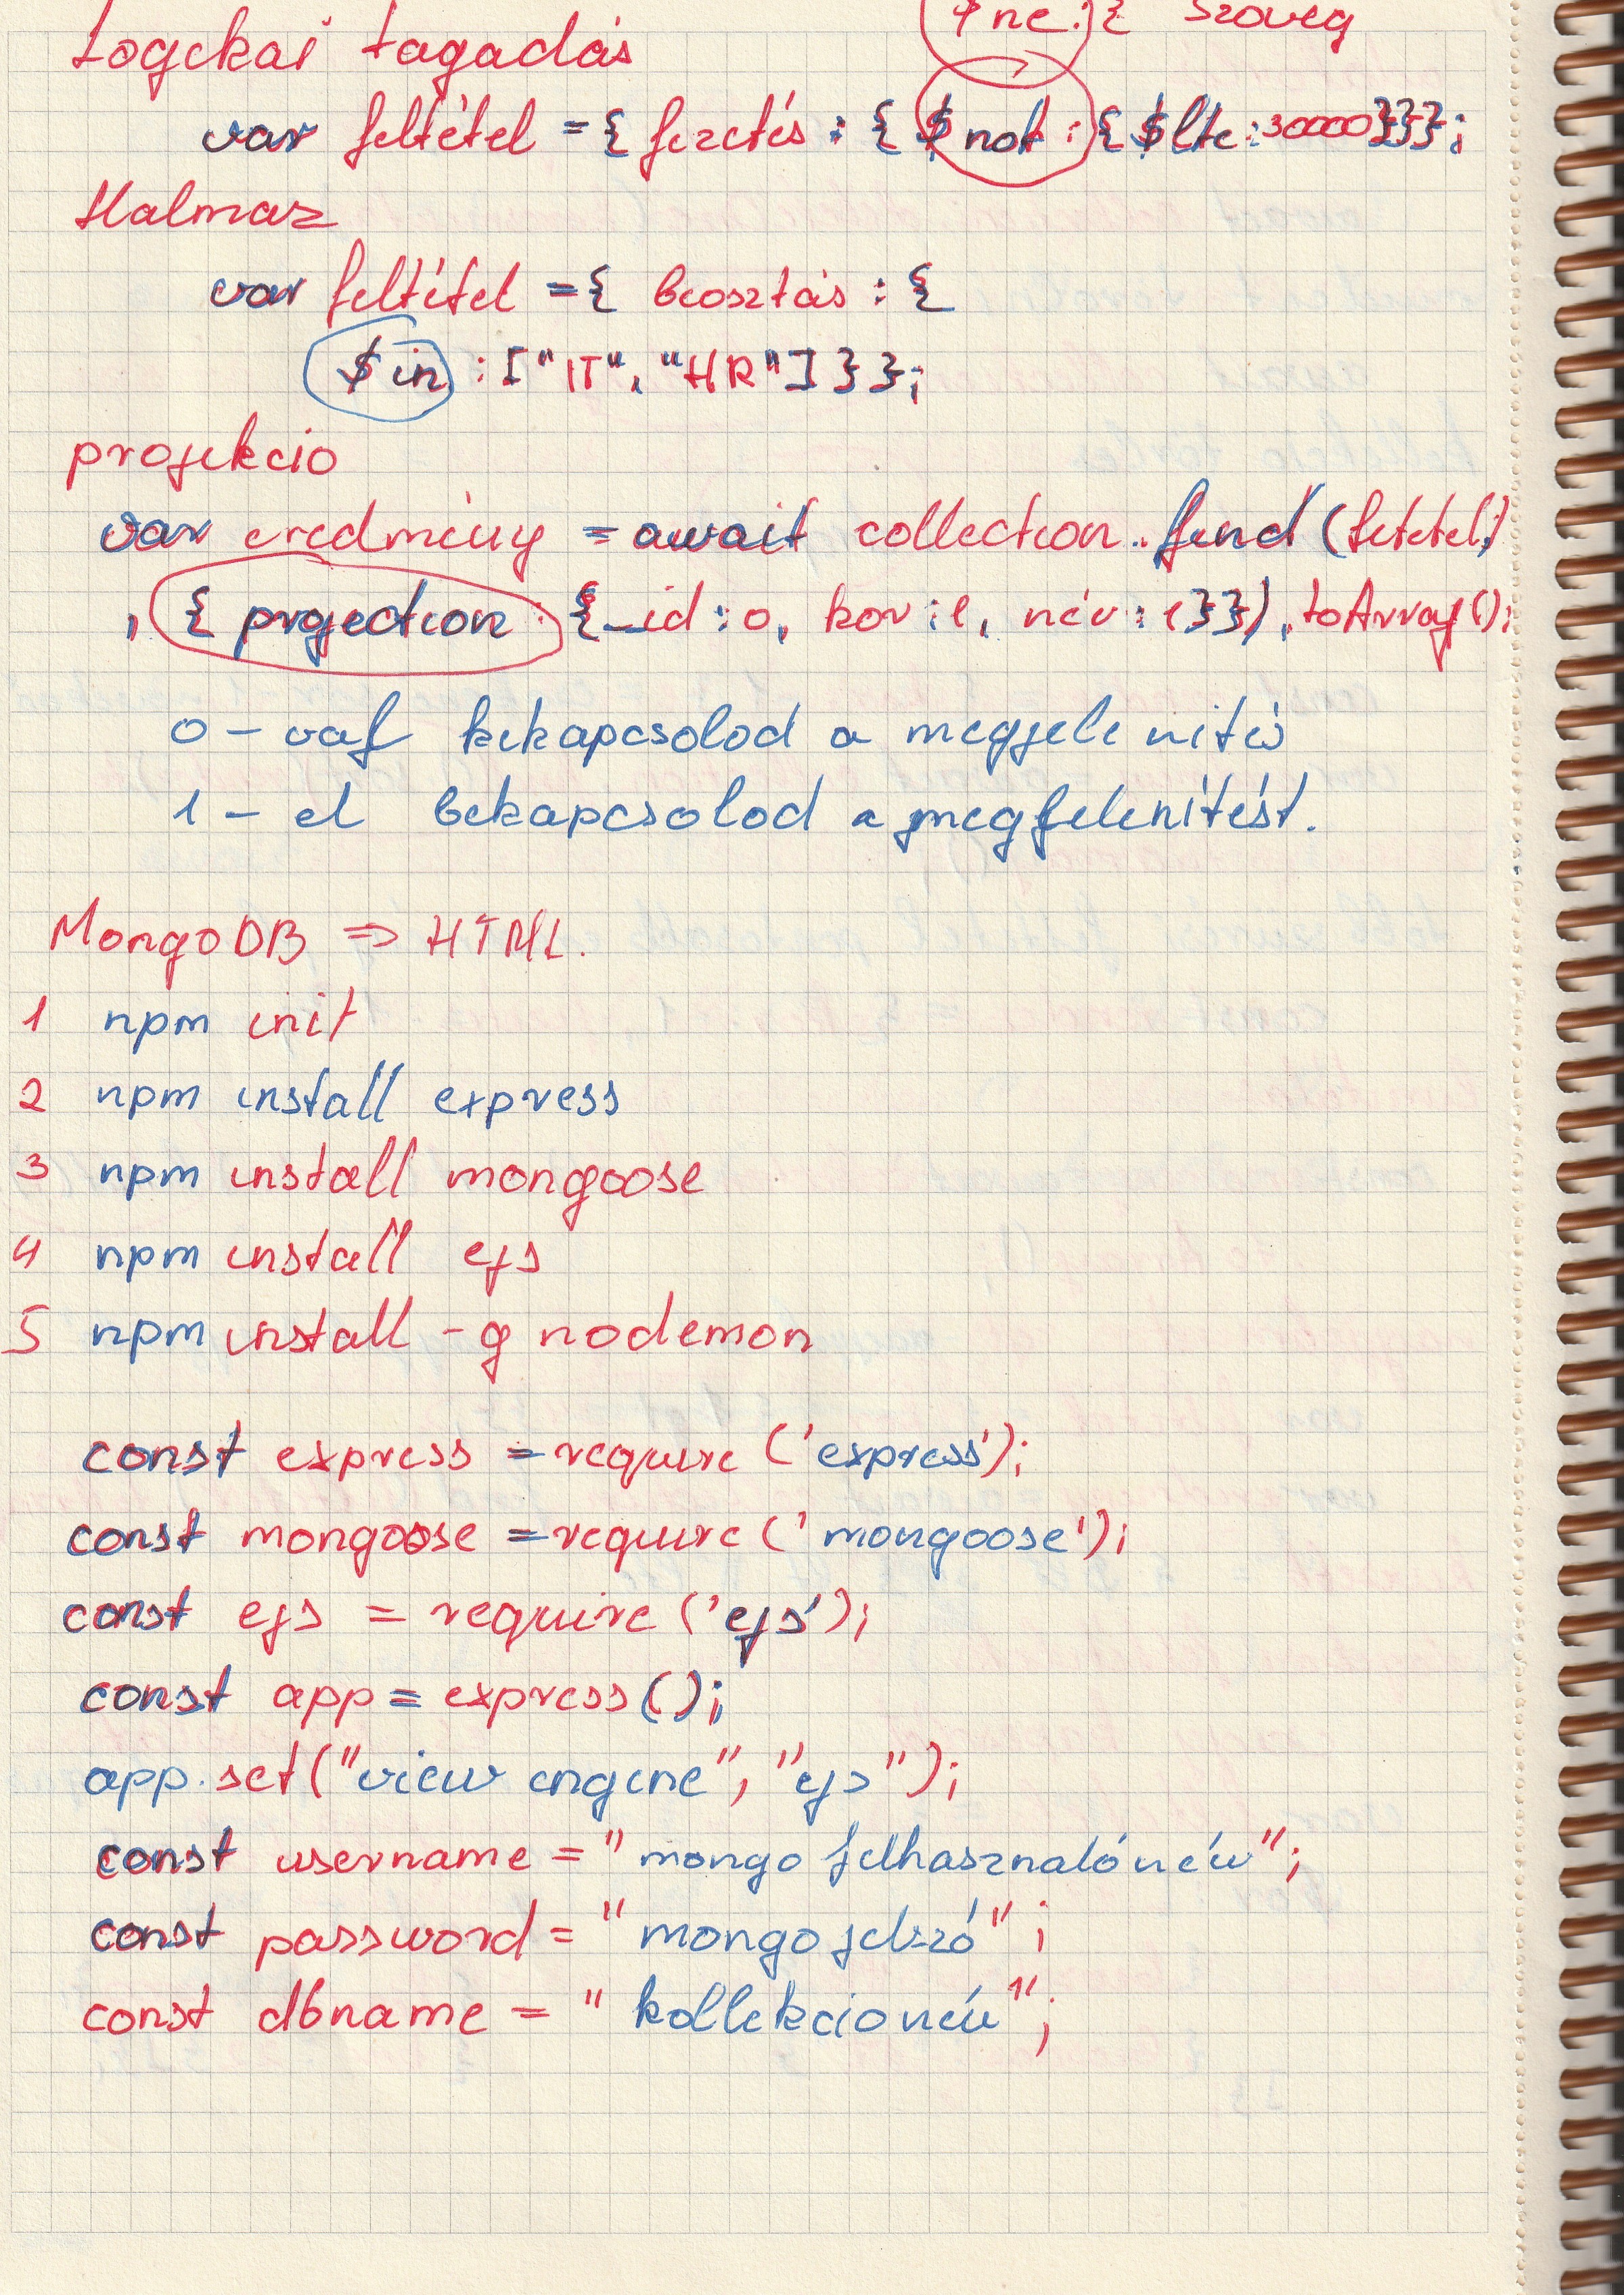 $ne: { szöveg
Logikai tagadás
var feltétel = { fizetés : { $not : { $lte : 30000 }}};
Halmaz
var feltétel = { beosztás : {
$in : ["IT", "HR"] } };
projekcio
var eredmény = await collection.find (feltetel)
, { projection : {_id : 0, kor : 1, név : 1 }}).toArray();
0 - val kikapcsolod a megjelenítés
1 - el bekapcsolod a megjelenítést.
MongoDB => HTML.
1 npm init
2 npm install express
3 npm install mongoose
4 npm install ejs
5 npm install -g nodemon
const express = require ('express');
const mongoose = require ('mongoose');
const ejs = require ('ejs');
const app = express ();
app.set("view engine", "ejs");
const username = "mongo felhasználónév";
const password = "mongo jelszó" ;
const dbname = "kollekcionév";